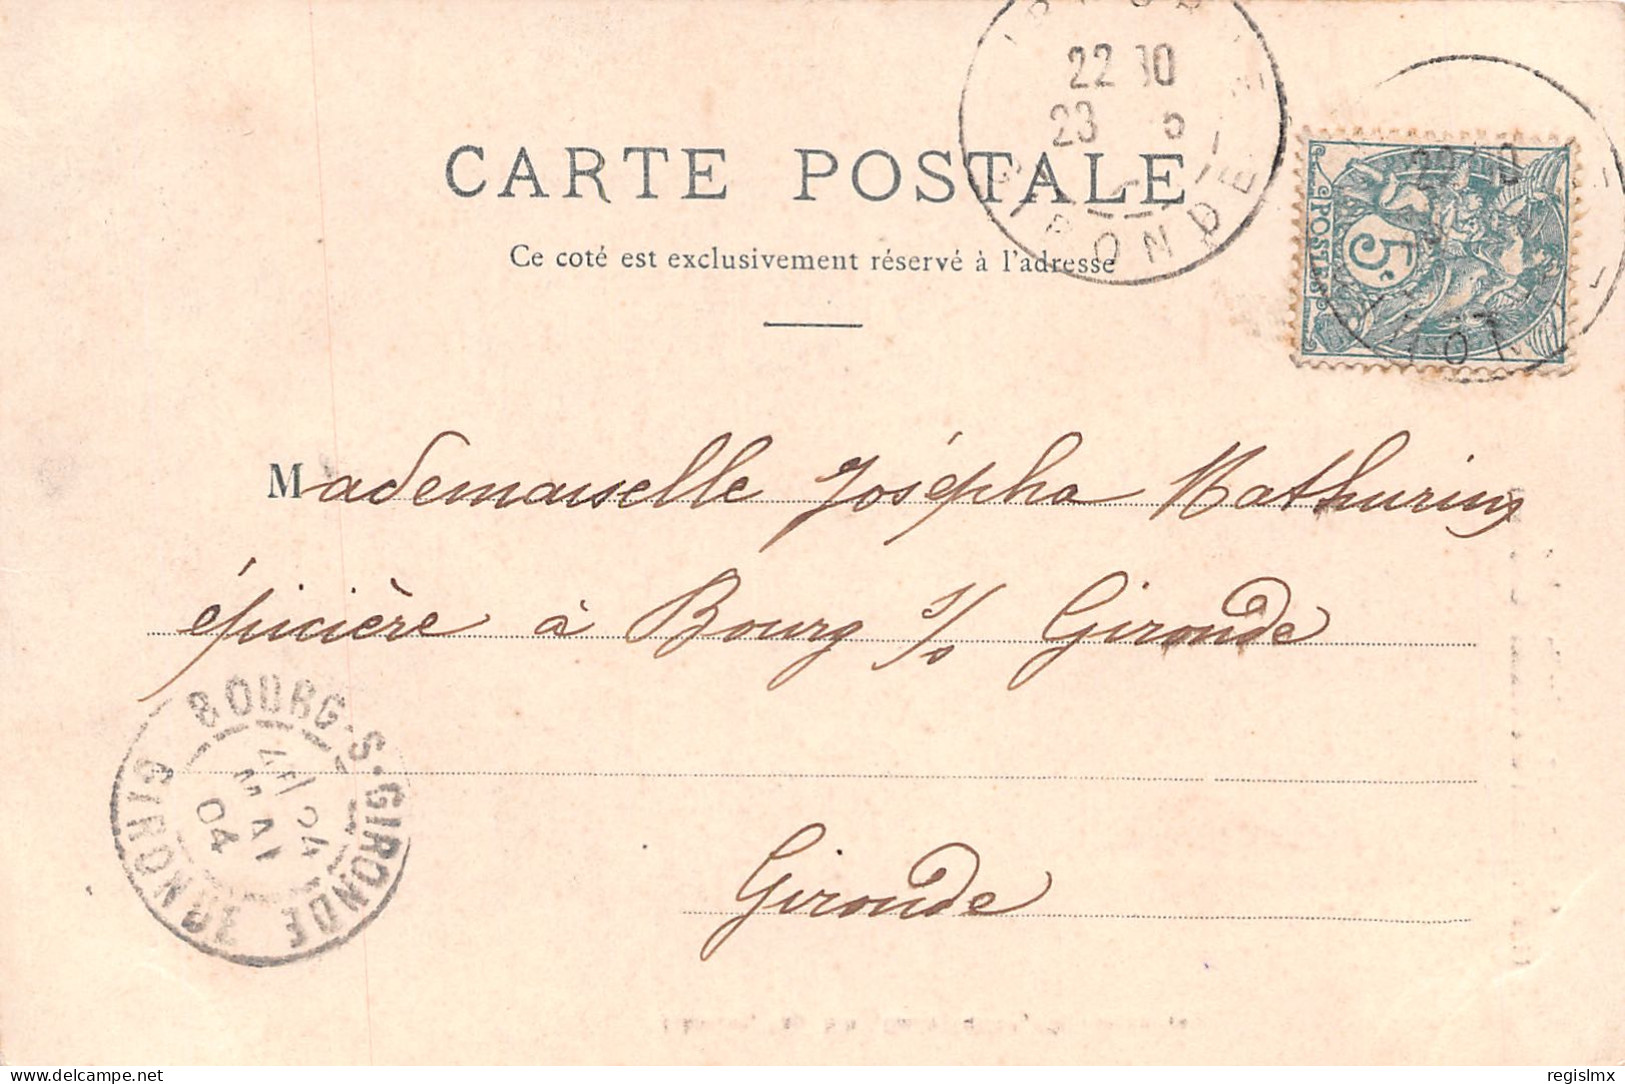 22 30
23 5
GIRONDE
CARTE POSTALE
Ce coté est exclusivement réservé à l'adresse
POSTES
5c
Mademoiselle Josépha Mathurin
épicière à Bourg s/s Gironde
BOURG-S-GIRONDE GIRONDE
24
MAI
04
Gironde
delcampe.net
regislmx